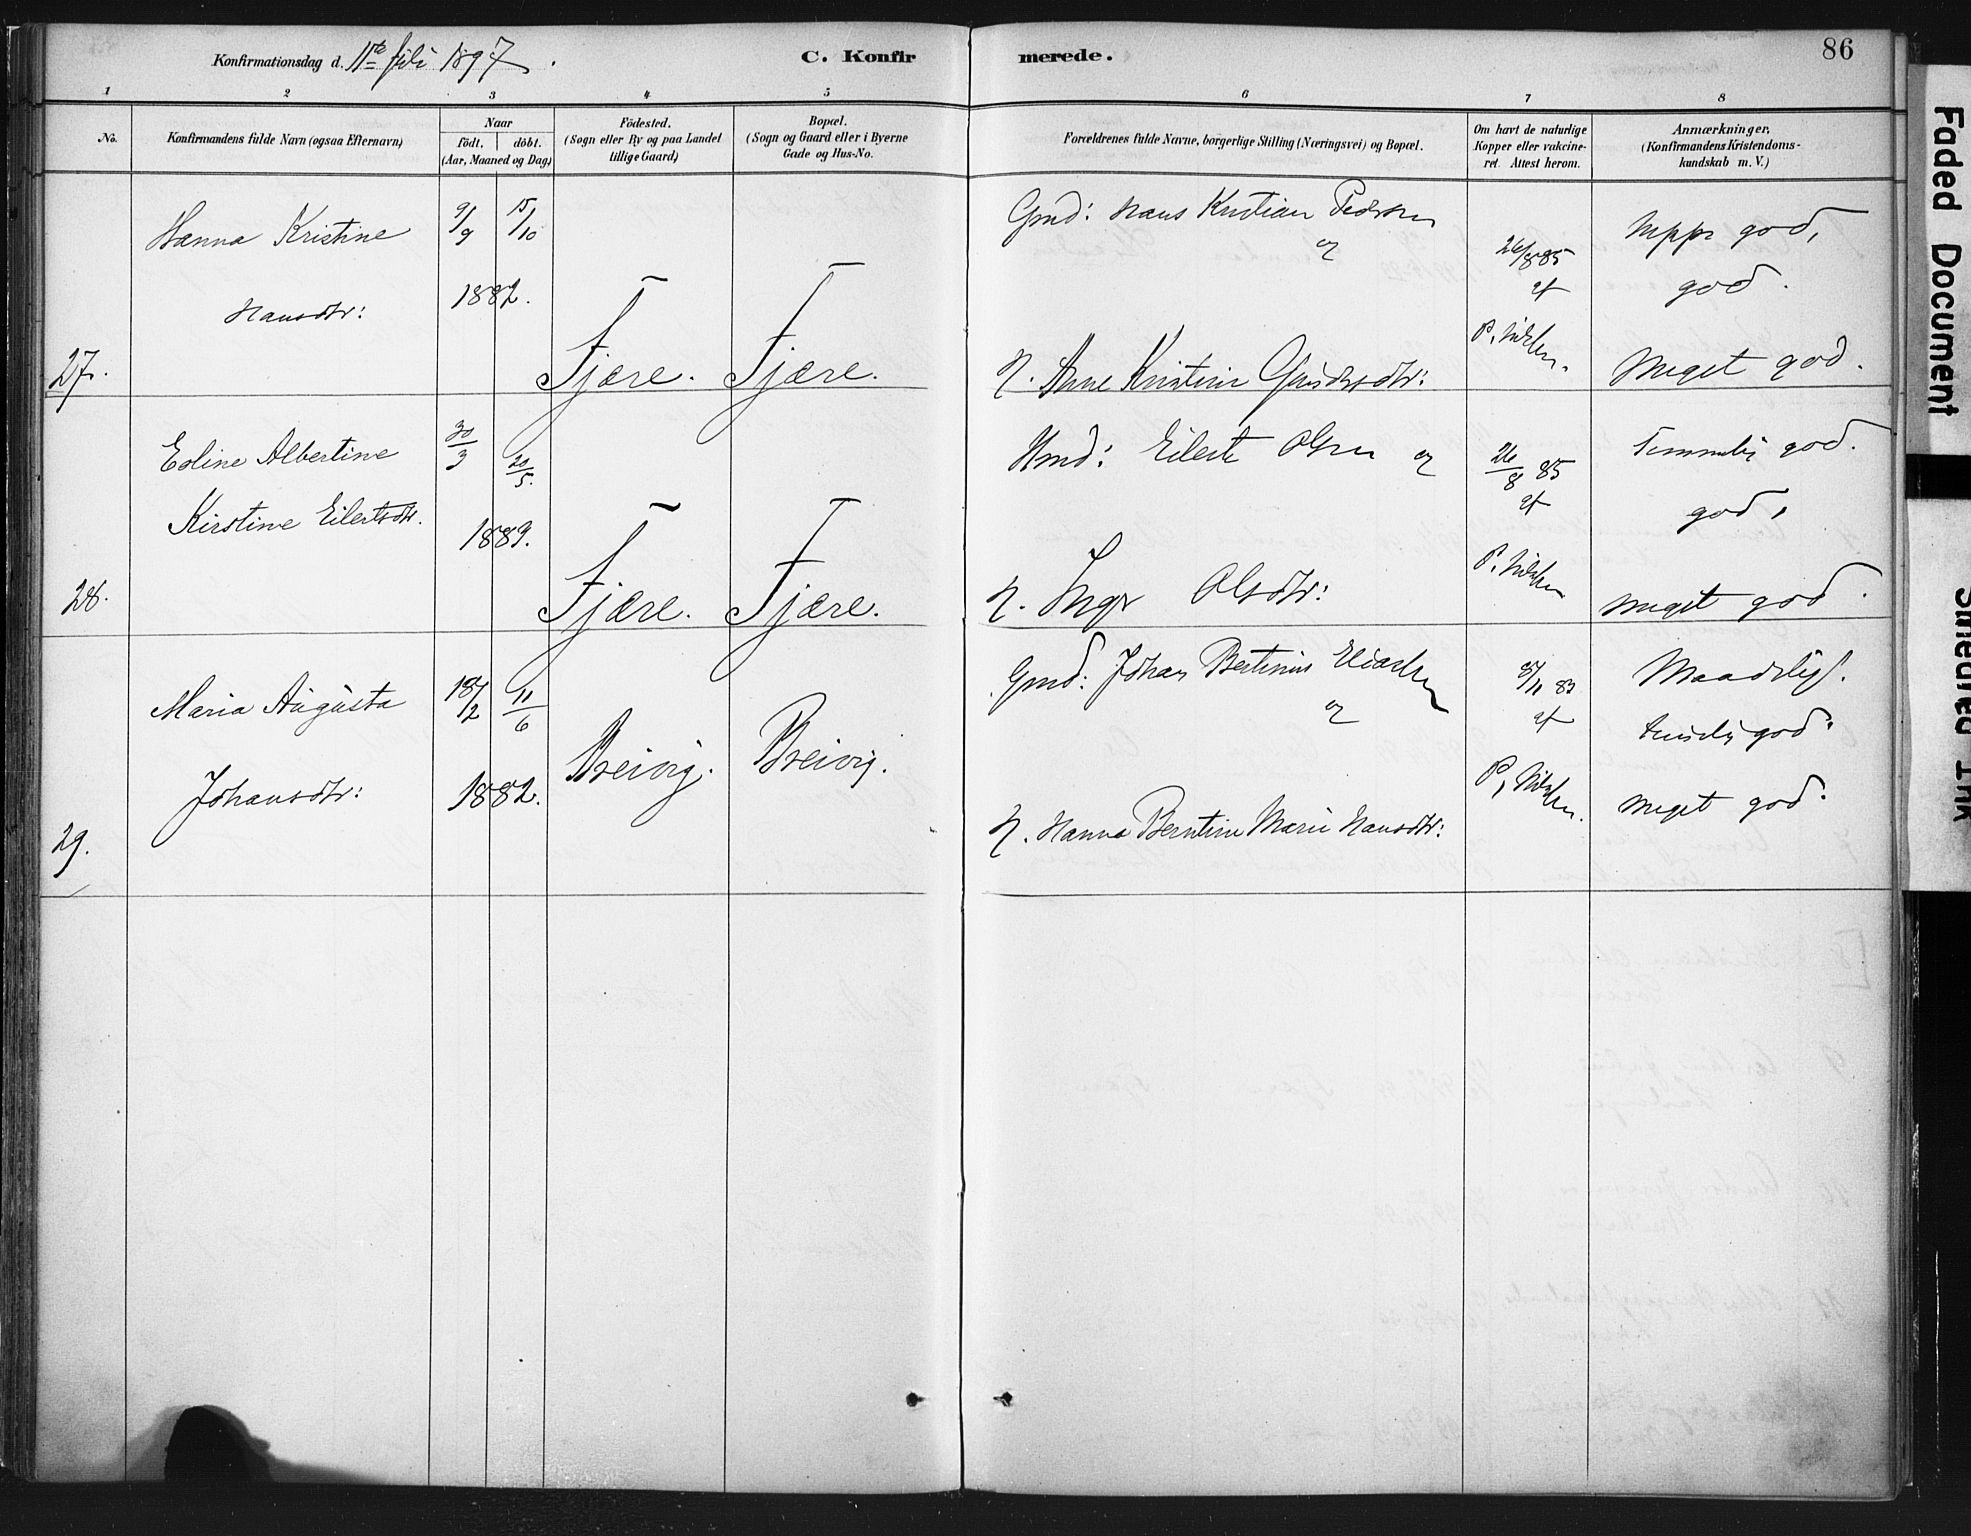 Konfirmationsdag d. 11te Juli 1897.
C. Konfirmerede.
86
1 2 3 4 5 6 7 8
No.
Konfirmandens fulde Navn (ogsaa Efternavn)
Naar
födt. döbt.
(Aar, Maaned og Dag)
Födested.
(Sogn eller By og paa Landet
tillige Gaard)
Bopæl.
(Sogn og Gaard eller i Byerne
Gade og Hus-No.
Forældrenes fulde Navne, borgerlige Stilling (Næringsvei) og Bopæl.
Om havt de naturlige
Kopper eller vakcine-
ret. Attest herom.
Anmærkninger,
(Konfirmandens Kristendoms-
kundskab m. V.)
27.
Hanna Kristine
Hansdtr:
9/9 15/10
1882.
Fjære. Fjære.
Gmd: Hans Kristian Pedersen
og
H. Anne Kristine
26/8 85
af
P. Nielsen.
god,
god.
Meget god.
28.
Edine Albertine
Kirstine Eilertsdtr.
30/3 20/5.
1882.
Fjære. Fjære.
Hmd: Eilert Olsen og
H. Inger Olsdtr:
26/8 85
af
P. Nielsen
Temmelig god.
god,
meget god.
29.
Maria Augusta
Johansdtr:
18/2 11/6
1882.
Breivig. Breivig.
Gmd: Johan Bertinius Eliassen
og
H. Hanna Berntine Marie Hansdtr:
8/11 83
af
P. Nielsen.
Maadelig.
god.
meget god.
Faded Document
Smeared Ink